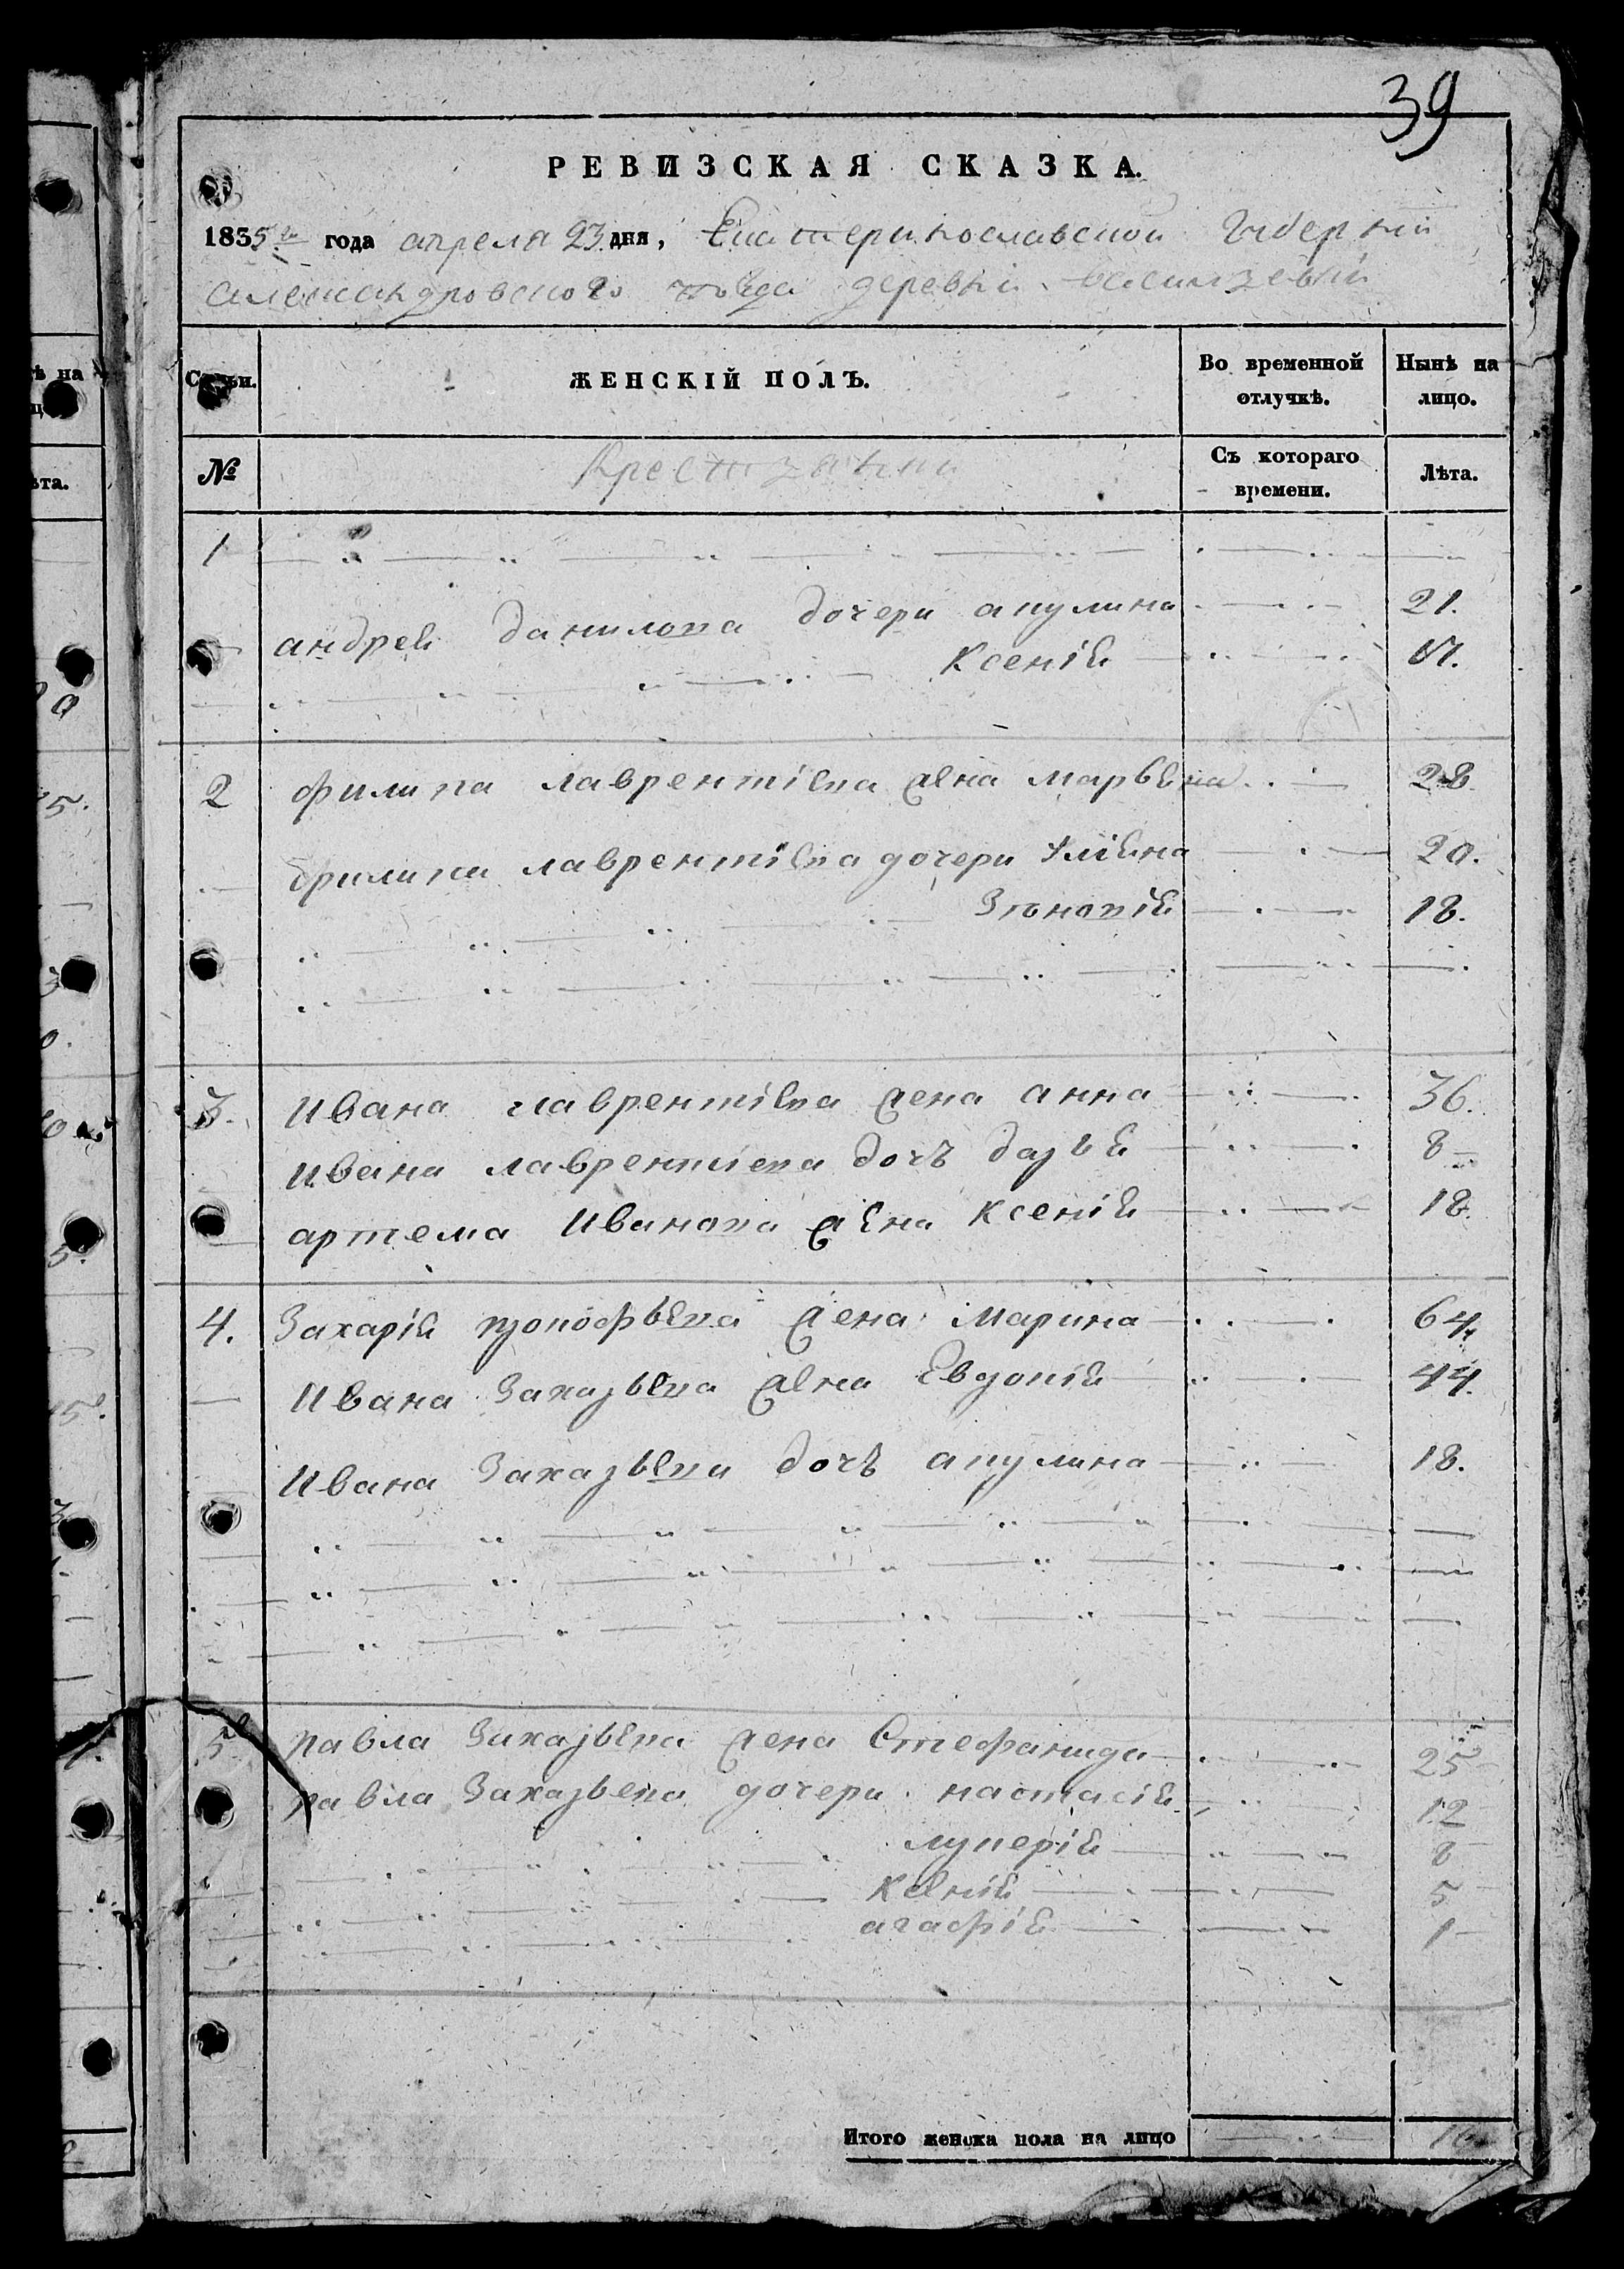 39
РЕВИЗСКАЯ СКАЗКА.
1835го года апреля 23 дня, Екатеринославской Губернiи
александровского уезда деревни
Семьи. ЖЕНСКIЙ ПОЛЪ. Во временной отлучкѣ. Нынѣ на лицо.
№ Крестьянки Съ котораго времени. Лѣта.
1
андрея данилова дочери акулина 21.
Ксенiя 17.
2 филипа лаврентiева жена марьяна 28
филипа лаврентiева дочери Улiяна 20.
Зѣновiя 18.
3. Ивана лаврентiева жена анна 36.
Ивана лаврентiева дочь дарья 8
артема Иванова жена Ксенiя 18.
4. Захарiя прокофьева жена Марина 64.
Ивана Захарьева жена Евдокiя 44.
Ивана Захарьева дочь акулина 18.
5 павла Захарьева жена Стефанида 25
павла Захарьева дочери настасiя 12
лукерiя 8
Ксенiя 5
агафiя 1
Итого женска пола на лицо 16